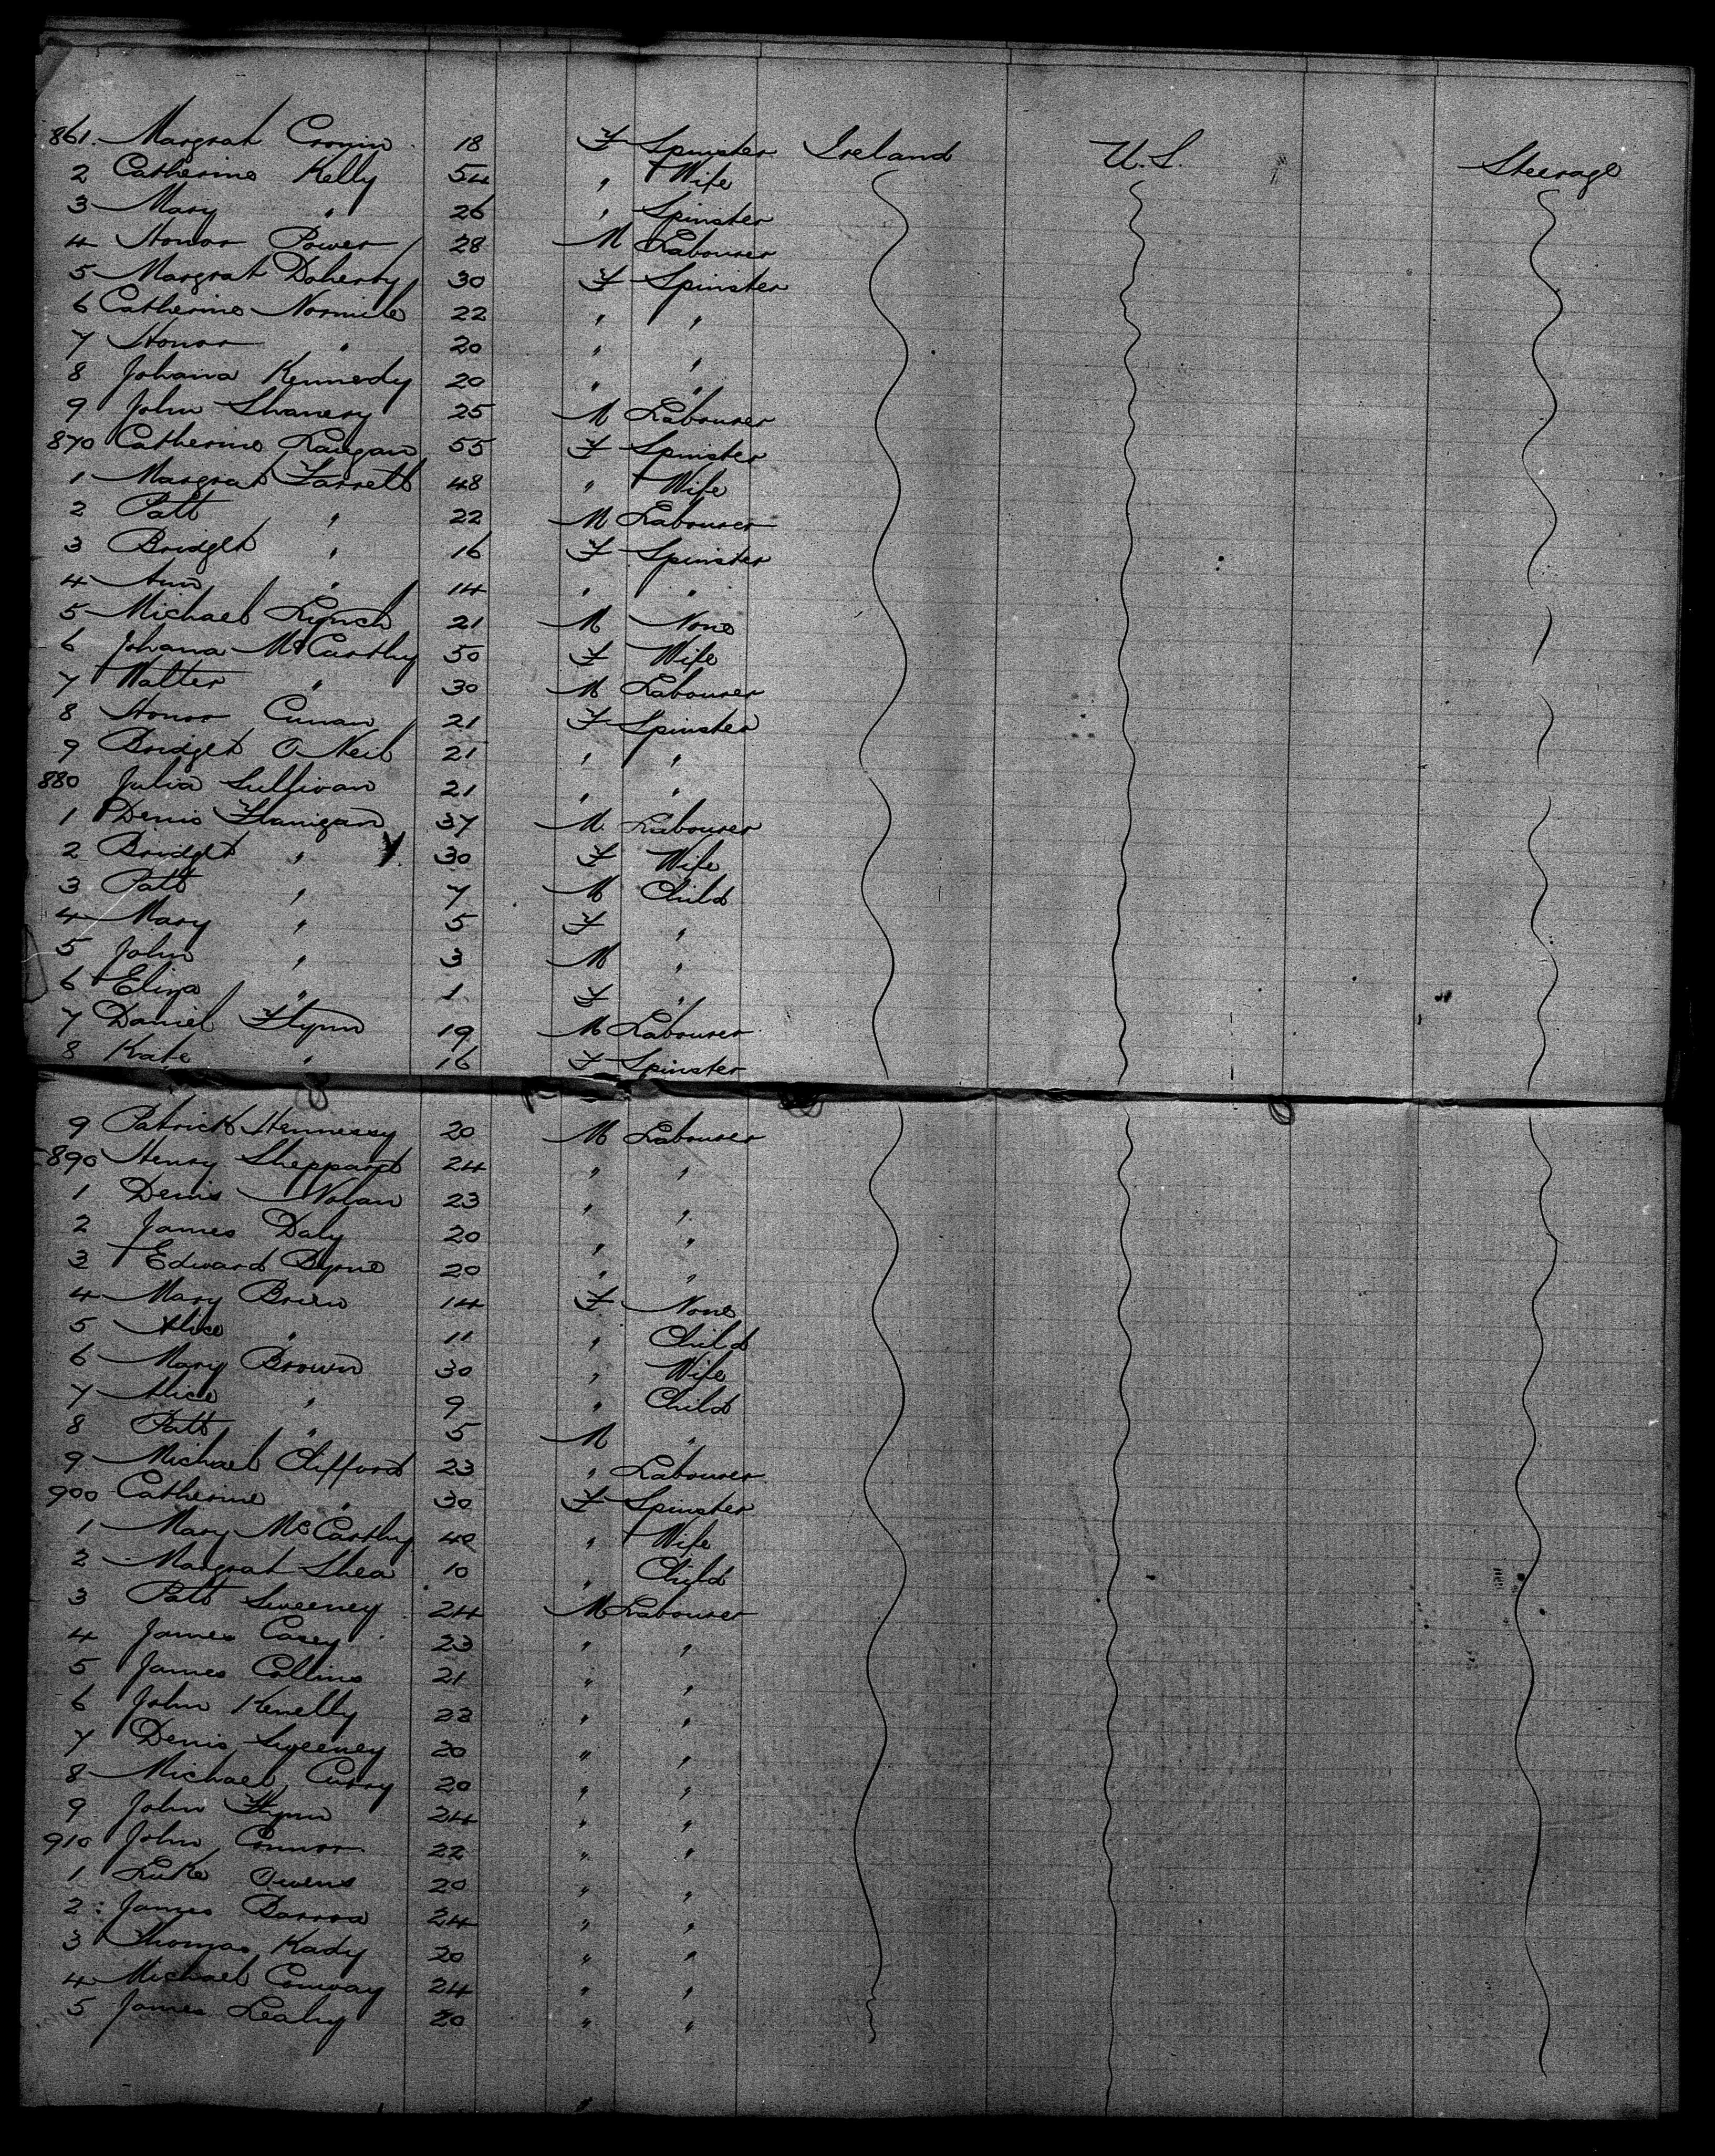 861. Margrat Cronin 18 F Spinster Ireland U.S. Steerage
2 Catherine Kelly 54 " Wife
3 Mary " 26 " Spinster
4 Honor Power 28 M Labourer
5 Margrat Doherty 30 F Spinster
6 Catherine Normile 22 " "
7 Honor " 20 " "
8 Johana Kennedy 20 " "
9 John Shanery 25 M Labourer
870 Catherine Langan 55 F Spinster
1 Margrat Farrell 48 " Wife
2 Patt " 22 M Labourer
3 Bridget " 16 F Spinster
4 Ann " 14 " "
5 Michael Lynch 21 M None
6 Johana McCarthy 50 F Wife
7 Walter " 30 M Labourer
8 Honor Cunan 21 F Spinster
9 Bridget O Neil 21 " "
880 Julia Sullivan 21 " "
1 Denis Flanigan 37 M Labourer
2 Bridget " 30 F Wife
3 Patt " 7 M Child
4 Mary " 5 F "
5 John " 3 M "
6 Eliza " 1 F "
7 Daniel Flynn 19 M Labourer
8 Kate " 16 F Spinster
9 Patrick Hennessy 20 M Labourer
890 Henry Sheppard 24 " "
1 Denis Nolan 23 " "
2 James Daly 20 " "
3 Edward Byrne 20 " "
4 Mary Brien 14 F None
5 Alice " 11 " Child
6 Mary Brown 30 " Wife
7 Alice " 9 " Child
8 Patt " 5 M "
9 Michael Clifford 23 " Labourer
900 Catherine " 30 F Spinster
1 Mary McCarthy 40 " Wife
2 Margrat Shea 10 " Child
3 Patt Sweeney 24 M Labourer
4 James Casey 23 " "
5 James Collins 21 " "
6 John Kenelly 23 " "
7 Denis Sweeney 20 " "
8 Michael Curry 20 " "
9 John Flynn 24 " "
910 John Connor 22 " "
1 Luke Owens 20 " "
2 James Barron 24 " "
3 Thomas Kady 20 " "
4 Michael Conway 24 " "
5 James Leahy 20 " "
"